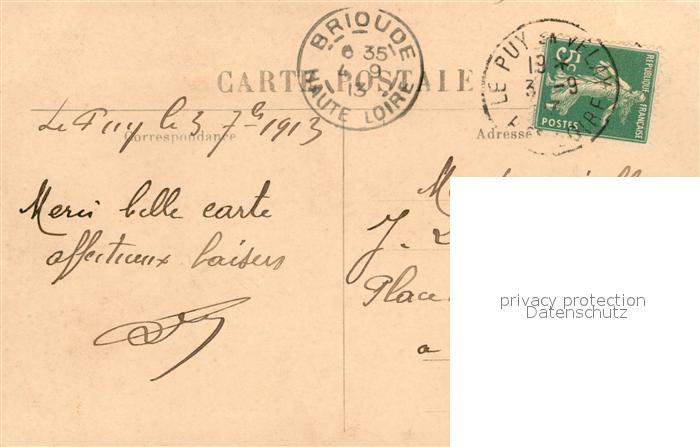 BRIOUDE
6 35
4 9
13
HAUTE LOIRE
LE PUY EN VELAY
19
3 - 9
LOIRE
5
POSTES
REPUBLIQUE FRANÇAISE
CARTE POSTALE
Le Puy le 3 7bre 1913
Correspondance
Adresse
Merci belle carte
affectueux baisers
J.
Place
a
privacy protection
Datenschutz